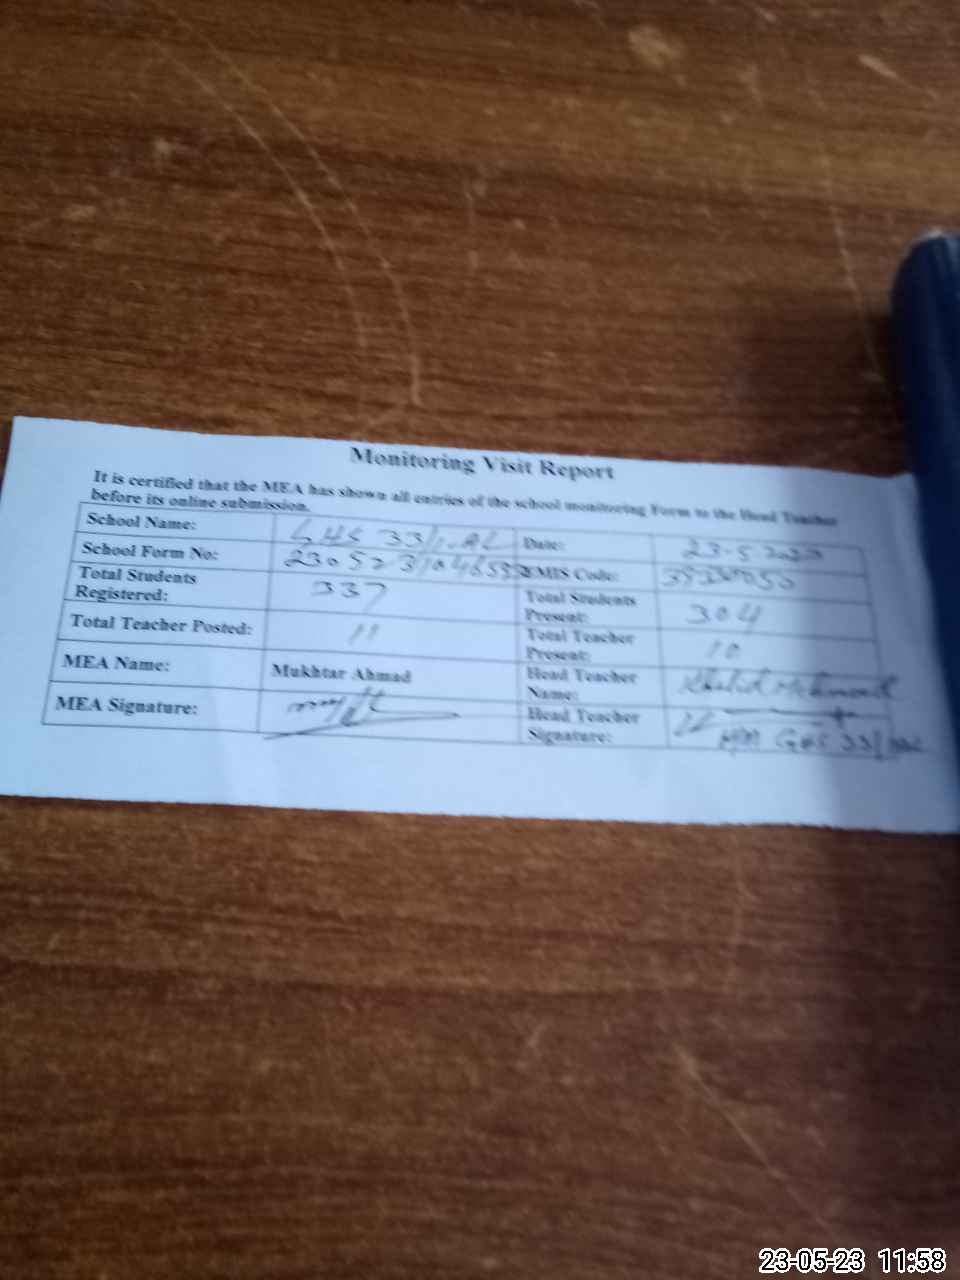 Monitoring Visit Report
It is certified that the MEA has shown all entries of the school monitoring Form to the Head Teacher
before its online submission.
School Name: 33/ Date: 23-5-2023
School Form No: EMIS Code:
Total Students Registered: 337 Total Students Present: 304
Total Teacher Posted: 11 Total Teacher Present: 10
MEA Name: Mukhtar Ahmad Head Teacher Name: Khalid Mehmood
MEA Signature: Head Teacher Signature:
23-05-23 11:58